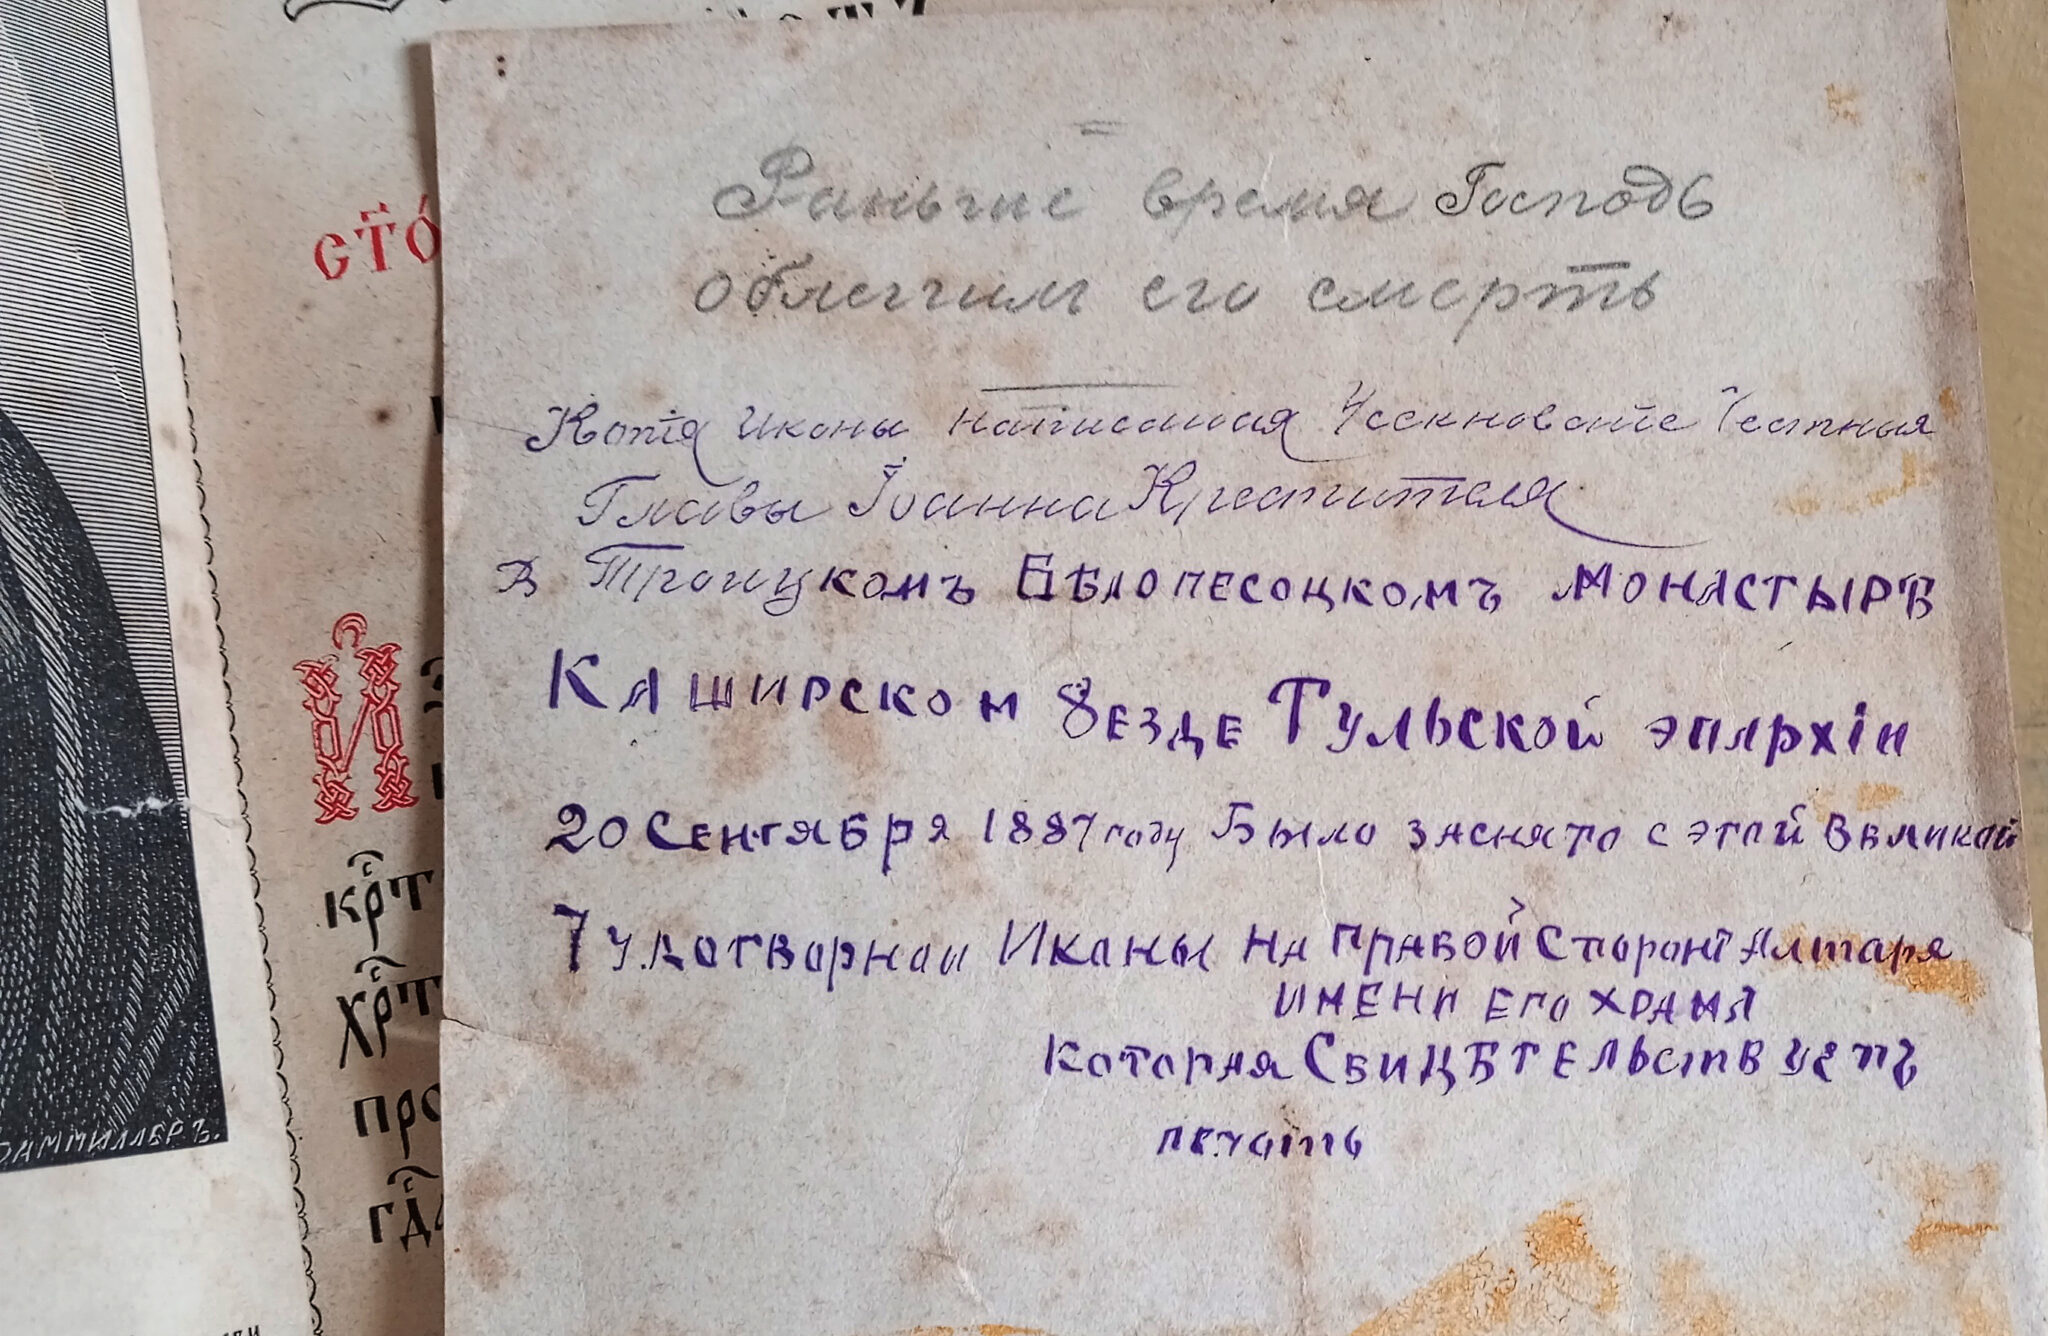 СТО́
КР҃Т
ХР҃Т
ПРО
ГД҃
ДАММИЛЛЕРЪ.
Раньше время Господь
облегчит его смерть
Копія Иконы написаная Усекнованіе Честныя
Главы Іоанна Крестителя
в Троицкомъ Бѣлопесоцкомъ монастырѣ
Каширском Ꙋезде Тульской эпархіи
20 Сентября 1887 году Было заснято с этой великой
Чудотворной Иконы на правой Сторонѣ Алтаря
имени его храма
которая Свидѣтельствуетъ
печать